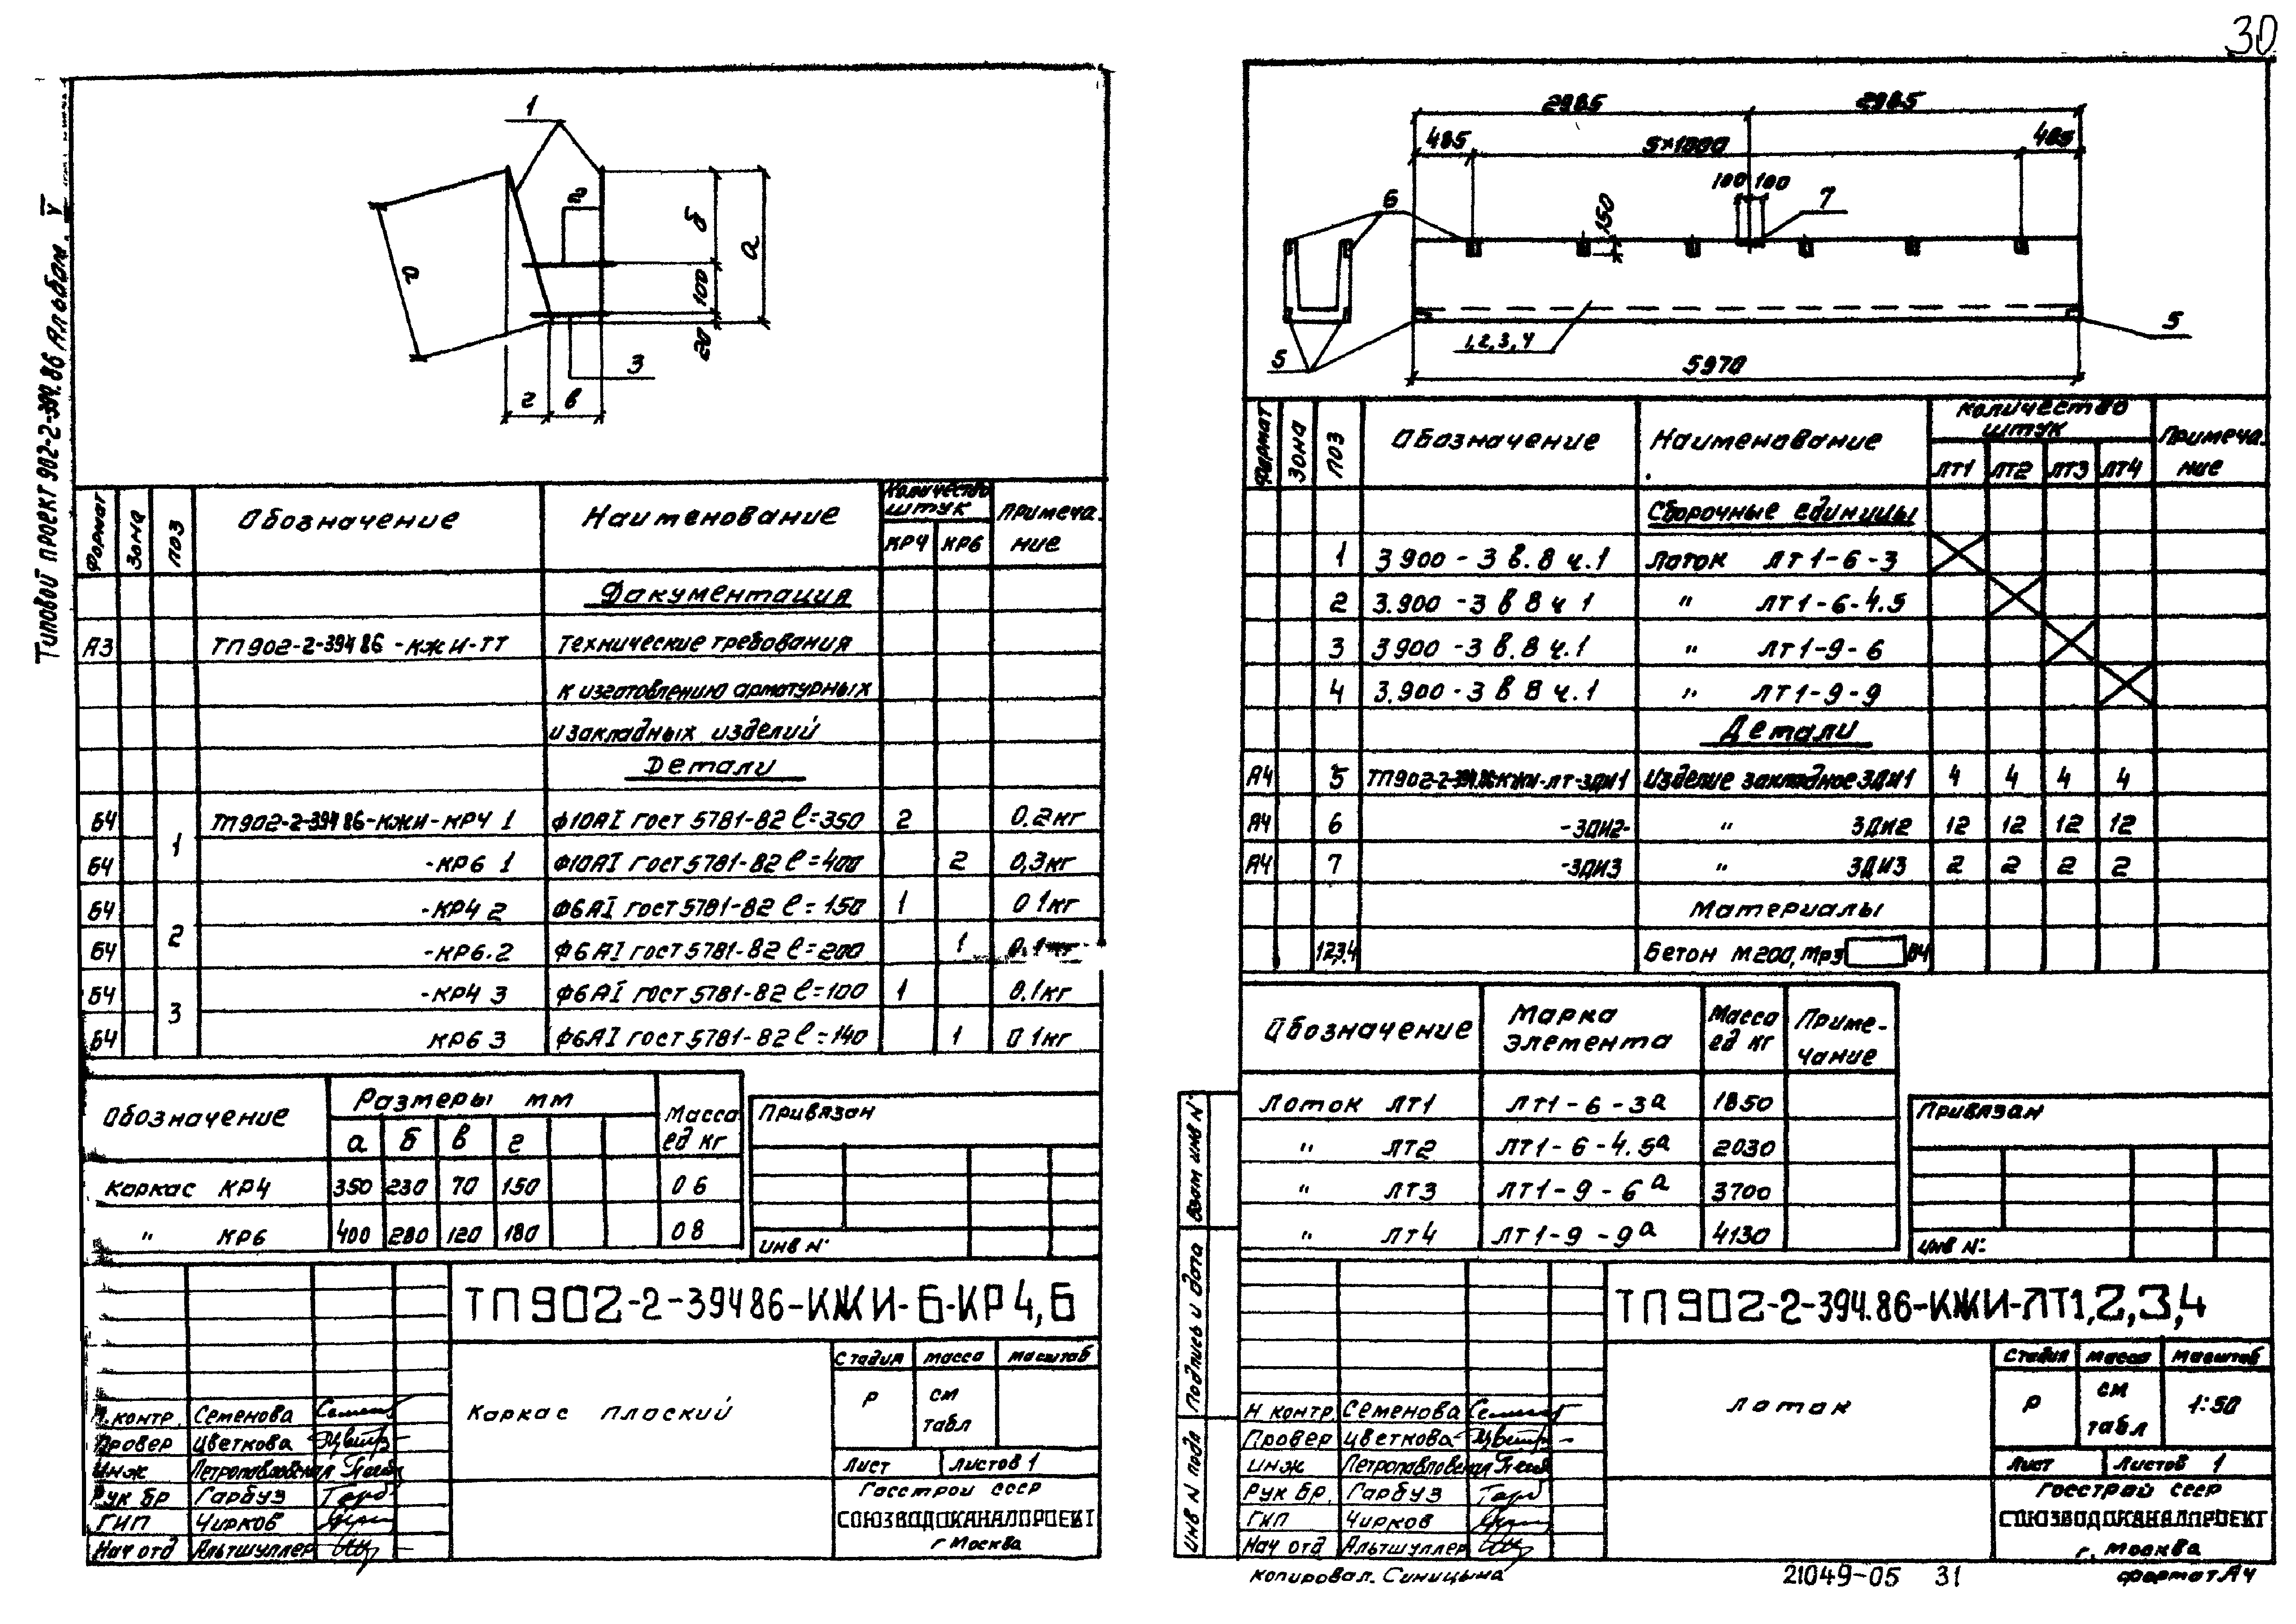 30
Типовой проект 902-2-394.86 Альбом V
1
2
а
б
а
100
20
3
г в
Формат Зона Поз Обозначение Наименование Количество штук Примечание
КР4 КР6
Документация
А3 ТП902-2-394 86-КЖИ-ТТ Технические требования
к изготовлению арматурных
и закладных изделий
Детали
Б4 1 ТП902-2-394 86-КЖИ-КР4 1 Ф10АI ГОСТ 5781-82 ℓ=350 2 0.2кг
Б4 -КР6 1 Ф10АI ГОСТ 5781-82 ℓ=400 2 0,3кг
Б4 2 -КР4 2 Ф6АI ГОСТ 5781-82 ℓ=150 1 0 1кг
Б4 -КР6.2 Ф6АI ГОСТ 5781-82 ℓ=200 1 0.1кг
Б4 3 -КР4 3 Ф6АI ГОСТ 5781-82 ℓ=100 1 0.1кг
Б4 КР6 3 Ф6АI ГОСТ 5781-82 ℓ=140 1 0 1кг
Обозначение Размеры мм Масса ед кг
а б в г
Каркас КР4 350 230 70 150 0 6
" КР6 400 280 120 180 0 8
Привязан
Инв N°
ТП902-2-394 86-КЖИ-Б-КР4,6
Каркас плоский
Стадия Масса Масштаб
Р см табл
Лист Листов 1
Госстрой СССР
СОЮЗВОДОКАНАЛПРОЕКТ
г Москва
Н.контр. Семенова
Провер Цветкова
Инж Петропавловская
Рук бр Гарбуз
ГИП Чирков
Нач отд Альтшуллер
2985 2985
485 5×1000 485
100 100
6 150 7
5 1,2,3,4 5
5970
Формат Зона Поз Обозначение Наименование Количество штук Примечание
ЛТ1 ЛТ2 ЛТ3 ЛТ4
Сборочные единицы
1 3 900-3 в.8 ч.1 Лоток ЛТ1-6-3
2 3.900-3 в 8 ч 1 " ЛТ1-6-4.5
3 3 900-3 в.8 ч.1 " ЛТ1-9-6
4 3.900-3 в 8 ч.1 " ЛТ1-9-9
Детали
А4 5 ТП902-2-394.86-КЖИ-ЛТ-ЗДИ1 Изделие закладное ЗДИ1 4 4 4 4
А4 6 -ЗДИ2- " ЗДИ2 12 12 12 12
А4 7 -ЗДИ3 " ЗДИ3 2 2 2 2
Материалы
1,2,3,4 Бетон М200, Мрз В4
Обозначение Марка элемента Масса ед кг Примечание
Лоток ЛТ1 ЛТ1-6-3а 1850
" ЛТ2 ЛТ1-6-4.5а 2030
" ЛТ3 ЛТ1-9-6а 3700
" ЛТ4 ЛТ1-9-9а 4130
Привязан
Инв N°
Взам инв N°
Подпись и дата
Инв N подл
ТП902-2-394.86-КЖИ-ЛТ1,2,3,4
Лоток
Стадия Масса Масштаб
Р см табл 1:50
Лист Листов 1
Госстрой СССР
СОЮЗВОДОКАНАЛПРОЕКТ
г. Москва
Н контр. Семенова
Провер Цветкова
Инж Петропавловская
Рук бр. Гарбуз
ГИП Чирков
Нач отд Альтшуллер
Копировал. Синицына 21049-05 31 формат А4